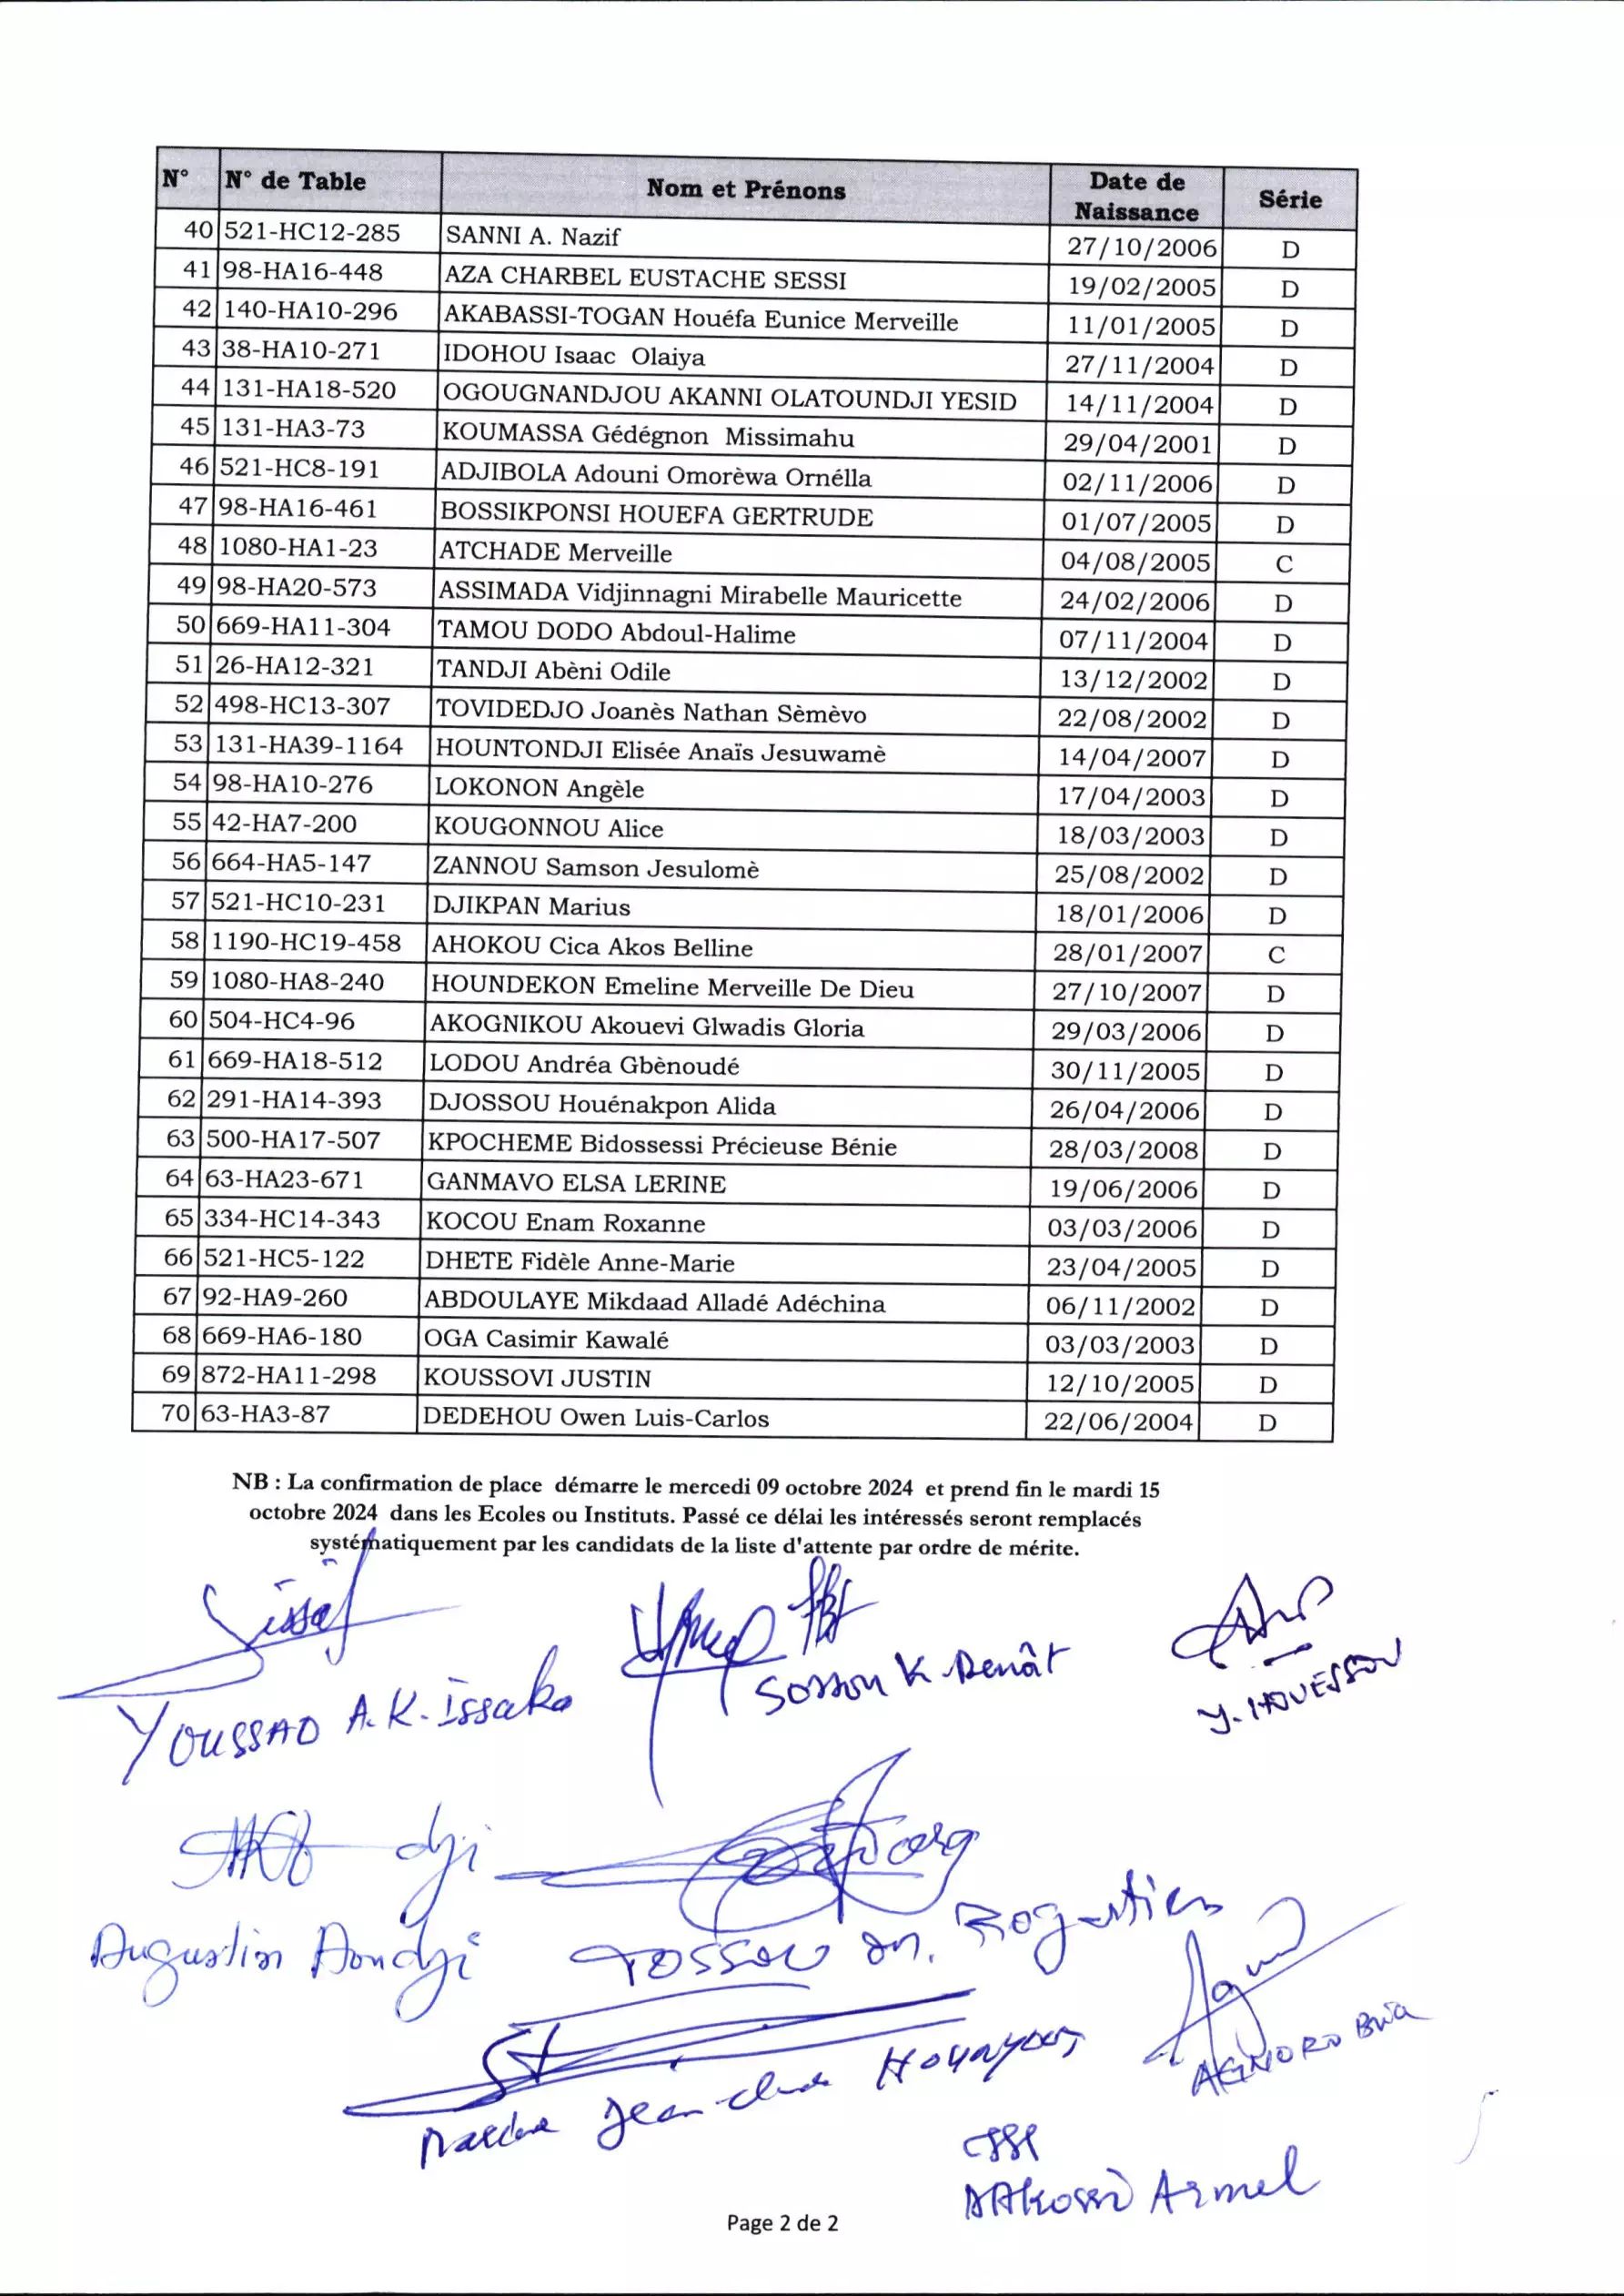 N° N° de Table Nom et Prénons Date de Naissance Série
40 521-HC12-285 SANNI A. Nazif 27/10/2006 D
41 98-HA16-448 AZA CHARBEL EUSTACHE SESSI 19/02/2005 D
42 140-HA10-296 AKABASSI-TOGAN Houéfa Eunice Merveille 11/01/2005 D
43 38-HA10-271 IDOHOU Isaac Olaiya 27/11/2004 D
44 131-HA18-520 OGOUGNANDJOU AKANNI OLATOUNDJI YESID 14/11/2004 D
45 131-HA3-73 KOUMASSA Gédégnon Missimahu 29/04/2001 D
46 521-HC8-191 ADJIBOLA Adouni Omorèwa Ornélla 02/11/2006 D
47 98-HA16-461 BOSSIKPONSI HOUEFA GERTRUDE 01/07/2005 D
48 1080-HA1-23 ATCHADE Merveille 04/08/2005 C
49 98-HA20-573 ASSIMADA Vidjinnagni Mirabelle Mauricette 24/02/2006 D
50 669-HA11-304 TAMOU DODO Abdoul-Halime 07/11/2004 D
51 26-HA12-321 TANDJI Abèni Odile 13/12/2002 D
52 498-HC13-307 TOVIDEDJO Joanès Nathan Sèmèvo 22/08/2002 D
53 131-HA39-1164 HOUNTONDJI Elisée Anaïs Jesuwamè 14/04/2007 D
54 98-HA10-276 LOKONON Angèle 17/04/2003 D
55 42-HA7-200 KOUGONNOU Alice 18/03/2003 D
56 664-HA5-147 ZANNOU Samson Jesulomè 25/08/2002 D
57 521-HC10-231 DJIKPAN Marius 18/01/2006 D
58 1190-HC19-458 AHOKOU Cica Akos Belline 28/01/2007 C
59 1080-HA8-240 HOUNDEKON Emeline Merveille De Dieu 27/10/2007 D
60 504-HC4-96 AKOGNIKOU Akouevi Glwadis Gloria 29/03/2006 D
61 669-HA18-512 LODOU Andréa Gbènoudé 30/11/2005 D
62 291-HA14-393 DJOSSOU Houénakpon Alida 26/04/2006 D
63 500-HA17-507 KPOCHEME Bidossessi Précieuse Bénie 28/03/2008 D
64 63-HA23-671 GANMAVO ELSA LERINE 19/06/2006 D
65 334-HC14-343 KOCOU Enam Roxanne 03/03/2006 D
66 521-HC5-122 DHETE Fidèle Anne-Marie 23/04/2005 D
67 92-HA9-260 ABDOULAYE Mikdaad Alladé Adéchina 06/11/2002 D
68 669-HA6-180 OGA Casimir Kawalé 03/03/2003 D
69 872-HA11-298 KOUSSOVI JUSTIN 12/10/2005 D
70 63-HA3-87 DEDEHOU Owen Luis-Carlos 22/06/2004 D
NB : La confirmation de place démarre le mercedi 09 octobre 2024 et prend fin le mardi 15
octobre 2024 dans les Ecoles ou Instituts. Passé ce délai les intéressés seront remplacés
systématiquement par les candidats de la liste d'attente par ordre de mérite.
YOUSSAO A.K. Issaka
Sossou K. Benoît
Y. HOUESSOU
Augustin Aondji
TOSSOU
Jean-Claude
Armel
Page 2 de 2